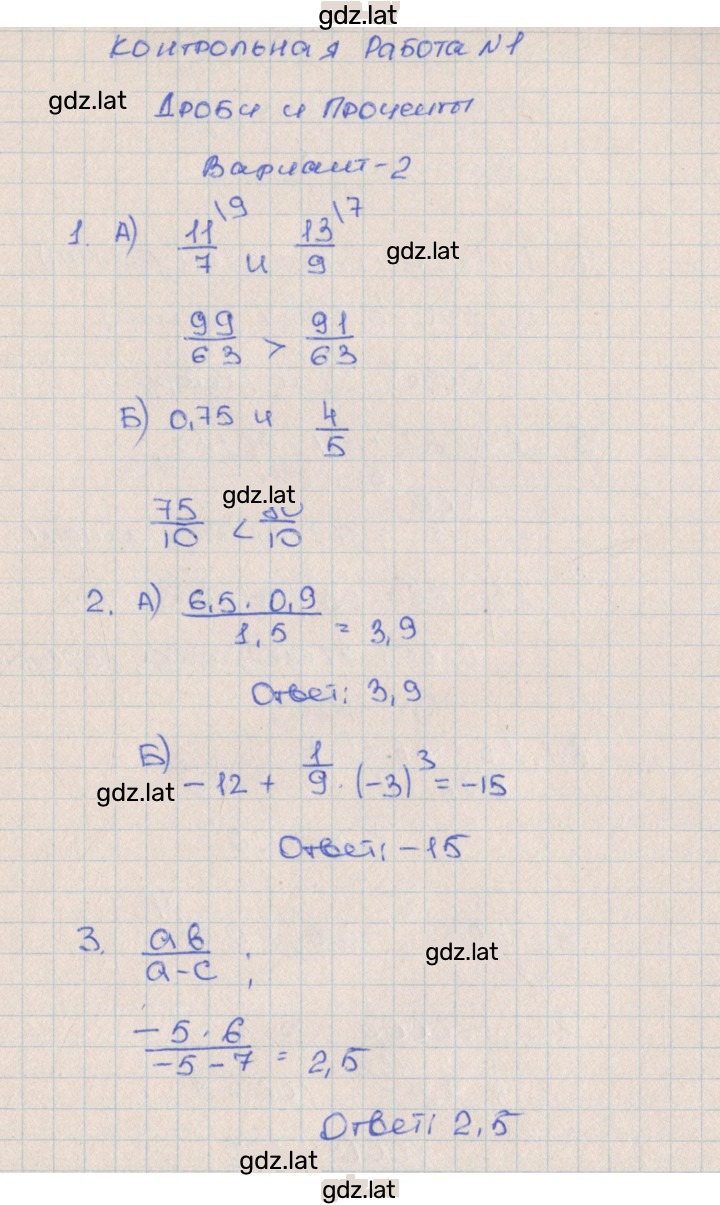 gdz.lat
Контрольная работа №1
gdz.lat
Дроби и проценты
Вариант-2
1. А) 11/7 \9 и 13/9 \7
gdz.lat
99/63 > 91/63
Б) 0,75 и 4/5
gdz.lat
75/10 < /10
2. А) 6,5 · 0,9 / 1,5 = 3,9
Ответ: 3,9
Б) -12 + 1/9 · (-3)³ = -15
gdz.lat
Ответ: -15
3. ab/a-c ;
gdz.lat
-5 · 6 / -5 - 7 = 2,5
Ответ: 2,5
gdz.lat
gdz.lat